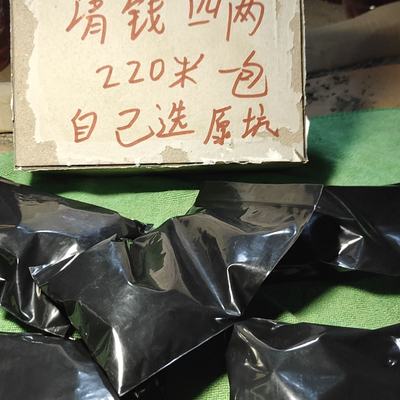 清钱四两
220米一包
自己选原坑